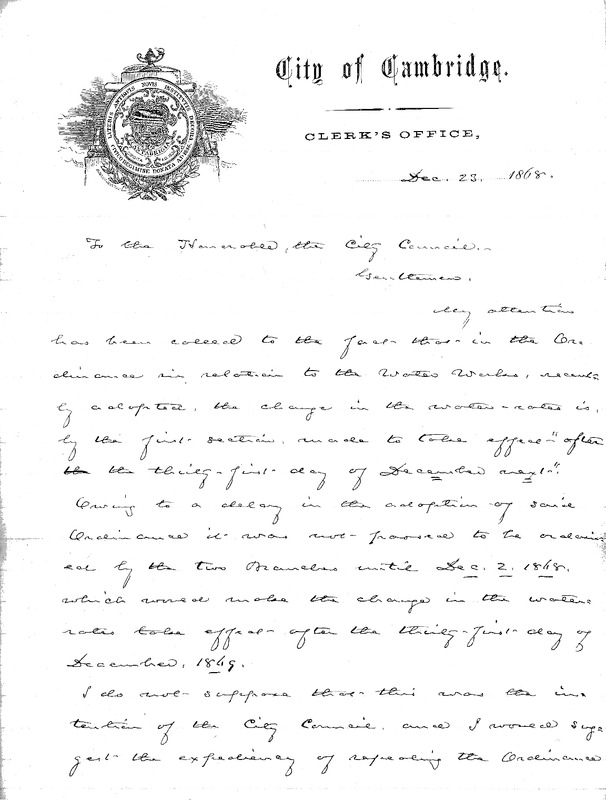 City of Cambridge.
CLERK'S OFFICE,
LITERIS ANTIQUIS NOVIS INSTITUTIS DECORA
CANTABRIGIA
Dec. 23. 1868.
To the Honorable, the City Council.
Gentlemen.
My attention
has been called to the fact that in the Or-
dinance in relation to the Water Works, recent-
ly adopted, the change in the water-rates is,
by the first section, made to take effect "after
the the thirty-first day of December next".
Owing to a delay in the adoption of said
Ordinance it was not passed to be ordain
ed by the two Branches until Dec. 2. 1868.
which would make the change in the water
rates take effect after the thirty-first day of
December, 1869.
I do not suppose that this was the in-
tention of the City Council, and I would sug
gest the expediency of repealing the Ordinance